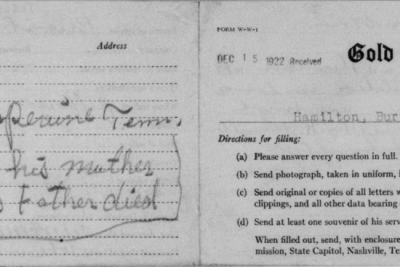 Address
Tenn.
his mother
Father died
FORM W-W-1
DEC 15 1922 Received
Gold
Hamilton, Bur
Directions for filling:
(a) Please answer every question in full.
(b) Send photograph, taken in uniform, i
(c) Send original or copies of all letters w
clippings, and all other data bearing
(d) Send at least one souvenir of his serv
When filled out, send, with enclosure
mission, State Capitol, Nashville, Te